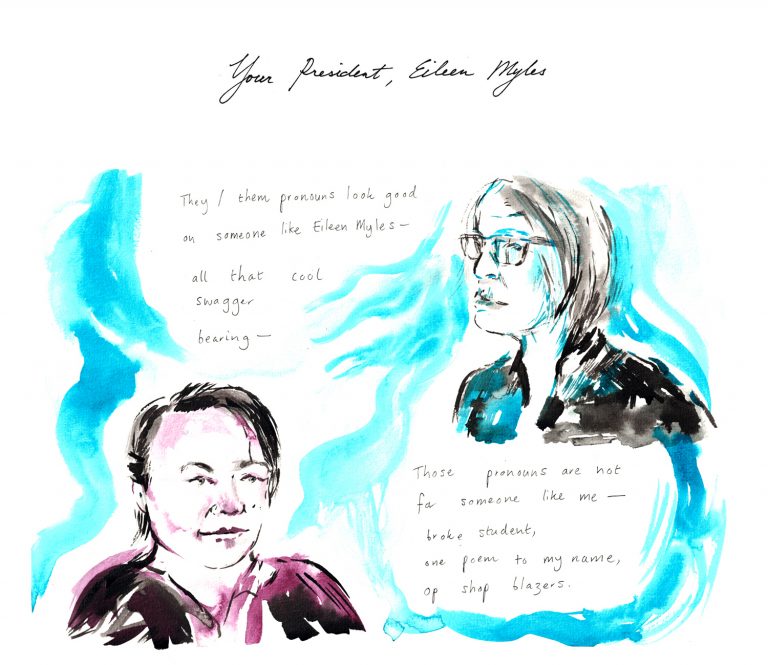 Your President, Eileen Myles
They / them pronouns look good
on someone like Eileen Myles—
all that cool
swagger
bearing—
Those pronouns are not
for someone like me —
broke student,
one poem to my name,
op shop blazers.